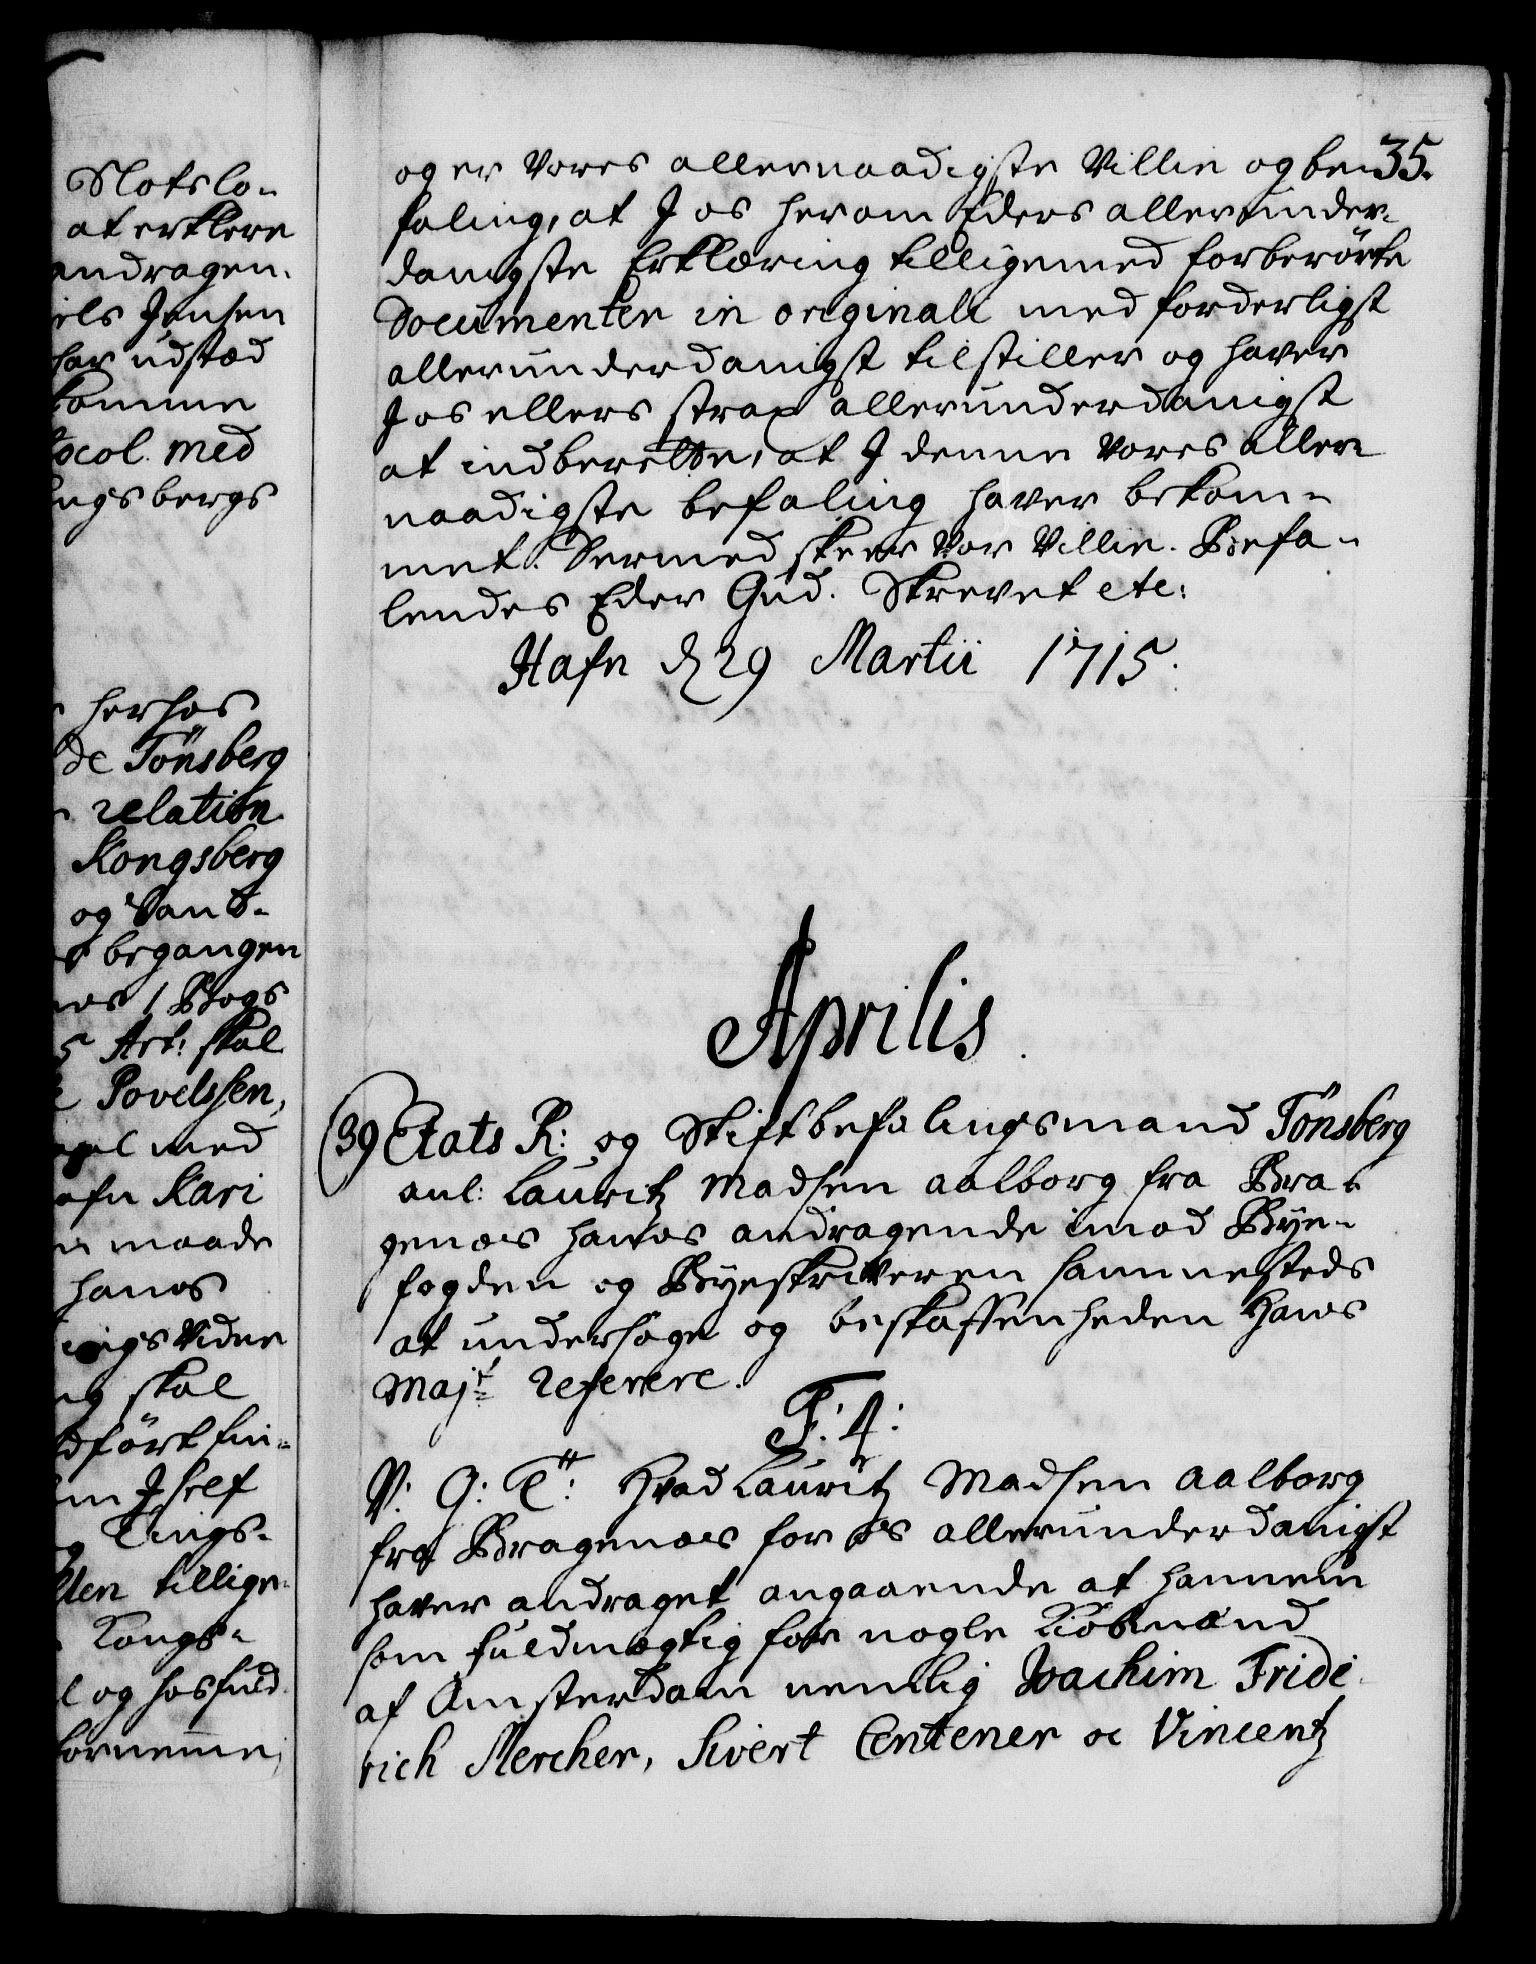 Slotslo-
at erklere
andragen.
els Jensen
har udstæd
komme
ocol. med
ngsbergs
herhos
de Tönsberg
relation
Kongsberg
og Vand-
begangen
1 Bogs
5 Art: skal
Povelssen,
med
Kari
maade
hanes
ings Vidne
skal
dfört fin-
Jself
Tings-
tillige-
Kongs-
og hosfüd
fornemme
35.
og er Vores allernaadigste Villie og be-
faling, at J os herom Eders allerunder-
danigste Erklæring tilligemed forberörte
Documenter in originali med forderligst
allerunderdanigst tilstiller og haver
J os ellers strax allerunderdanigst
at indberette, at J denne Vores aller-
naadigste befaling haver bekom-
met. Dermed skeer Vor Villie. Befa-
lendes Eder Gud. Skrevet etc:
Hafn d 29 Martii 1715.
Aprilis
39 Etats R: og Stiftbefalingsmand Tönsberg
anl: Lauritz Madsen Aalborg fra Bra-
genæs hanes andragende imod Bye-
fogden og Byeskriveren sammesteds
at undersøge og beskaffenheden Hans
Majt referere.
F: 4:
V: G: T: Hvad Lauritz Madsen Aalborg
fra Bragenæs for os allerunderdanigst
haver andraget angaaende at hannem
som fuldmægtig for nogle Kiøbmænd
af Amsterdam nemlig Joachim Fride
rich Mercher, Sivert Centener oc Vincentz